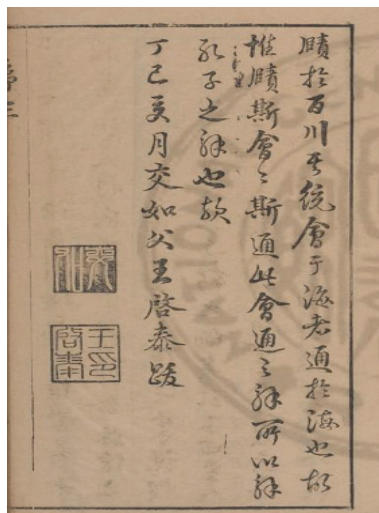 賾於百川其統會于海者通於海也故
惟賾斯會〻斯通此會通之繇所以繇
孔子之繇也歟
丁巳亥月交如父王啓泰跋
王印
啓泰